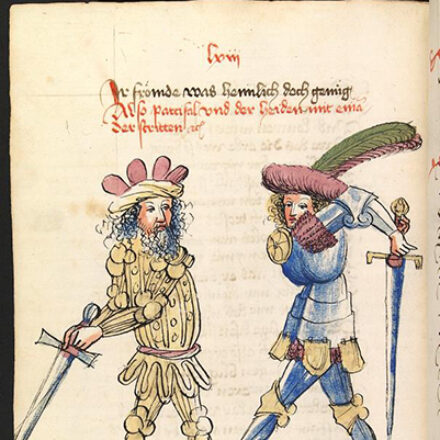 Ir frömde was heimlich doch genüg
Also partifal vnd der heiden mit einā
der stritten